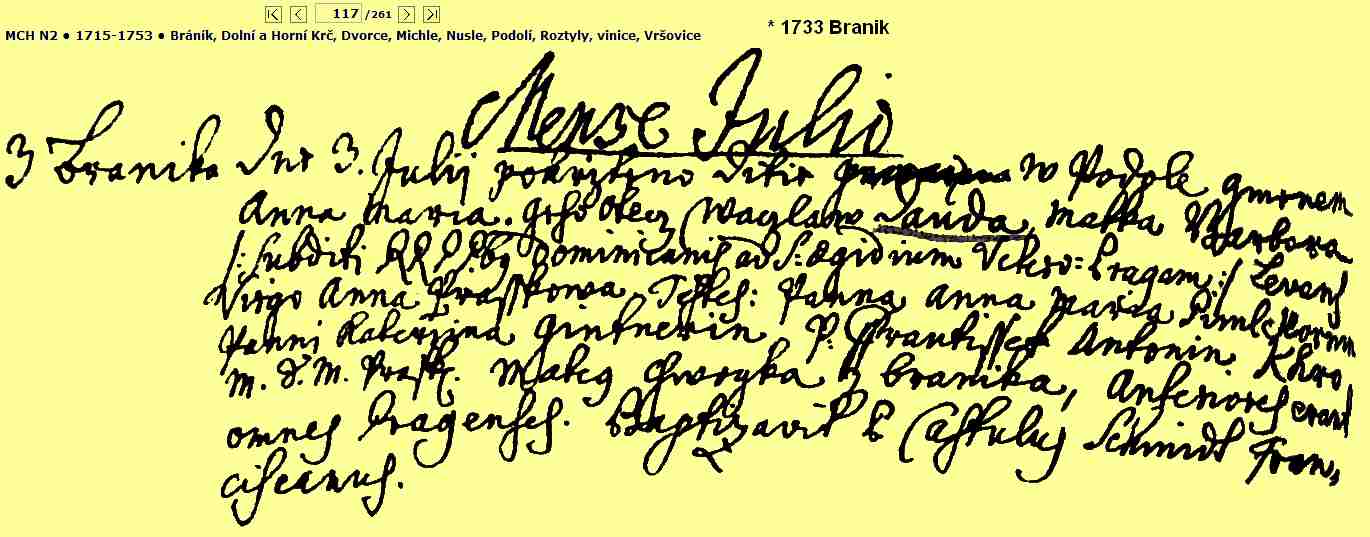 117 /261
MCH N2 ● 1715-1753 ● Bráník, Dolní a Horní Krč, Dvorce, Michle, Nusle, Podolí, Roztyly, vinice, Vršovice
* 1733 Branik
Mense Julio
3 Branika Dne 3. Julij pokrztino Ditie w Podole gmenem
Anna Maria. gehó otecz Waczlaw Dauda, matka Barbora
/: subditi Dominicanis ad S: Ægidium Vetero: Pragam :/ Levans
Virgo Anna Prasskowa. Testes: Panna Anna Maria
Panni Katerzina Gintnerin P. Frantissek Antonin
m. S. M. Matieg z Branika, Anteriores erant
omnes Pragenses. Baptizavit P Castulus Schmidt Fran,
ciscanus.